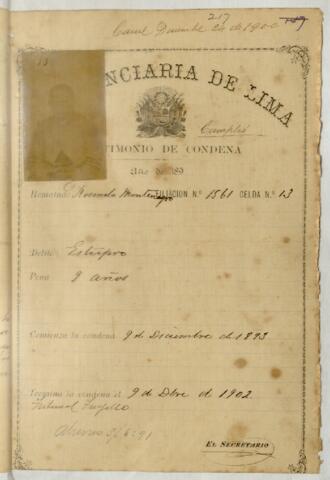 217
Diciembre 20 de 1900
NCIARIA DE LIMA
Cumplió
TIMONIO DE CONDENA
Año de 189
Rematado Rosendo Montenegro FILIACION N.º 1561 CELDA N.º 13
Delito Estupro
Pena 9 años
Comienza la condena 9 de Diciembre de 1893
Termina la condena el 9 de Dbre de 1902
Tribunal Trujillo
Ahorros S/ 6.91
EL SECRETARIO